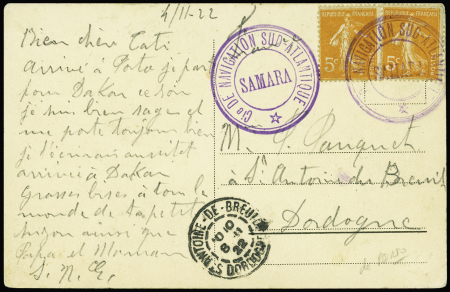 4/11-22
Bien chère Tati
arrivé à Porto je pars
pour Dakar ce soir
je suis bien sage et
me porte toujours bien
je t'écrirai aussitôt
arrivée à Dakar
Grosses bises à tout le
monde de ta petite
ainsi que
Papa et Maman
Cie DE NAVIGATION SUD-ATLANTIQUE
SAMARA
5c 5c
M.
à St Antoine du Breuil
Dordogne
ANTOINE-DE-BREUILH
8 -11
22
DORDOGNE